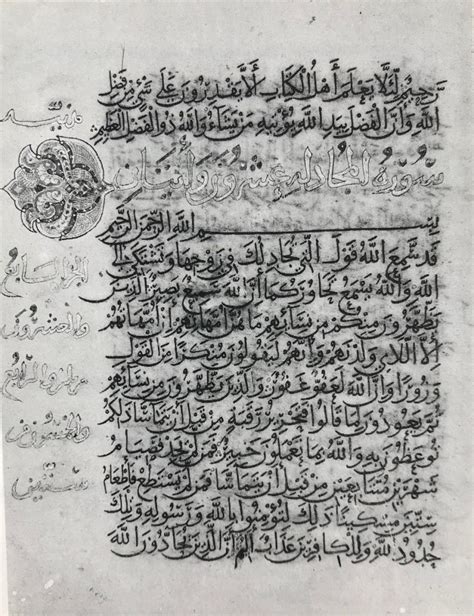 رحيم لئلا يعلم أهل الكتاب ألا يقدرون على شيء من فضل
الله وأن الفضل بيد الله يؤتيه من يشاء والله ذو الفضل العظيم
مدنية
سورة المجادله عشرون واثنتان
بسم الله الرحمن الرحيم
قد سمع الله قول التي تجادلك في زوجها وتشتكي إلى
الله والله يسمع تحاوركما إن الله سميع بصير الذين
يظهرون منكم من نسائهم ما هن أمهاتهم إن أمهاتهم
إلا اللائي ولدنهم وإنهم ليقولون منكرا من القول
وزورا وإن الله لعفو غفور والذين يظهرون من نسائهم
ثم يعودون لما قالوا فتحرير رقبة من قبل أن يتماسا ذلكم
توعظون به والله بما تعملون خبير فمن لم يجد فصيام
شهرين متتابعين من قبل أن يتماسا فمن لم يستطع فإطعام
ستين مسكينا ذلك لتؤمنوا بالله ورسوله وتلك
حدود الله وللكافرين عذاب أليم إن الذين يحادون الله
السابع
والعشرون
الرابع
والخمسون من
ستين